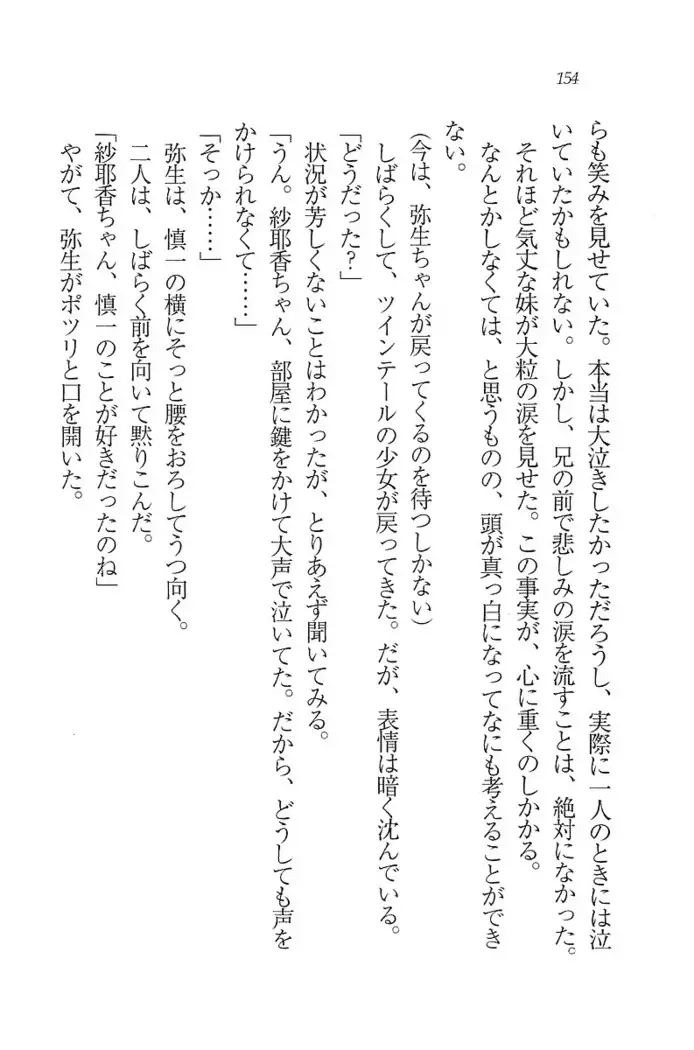 154
らも笑みを見せていた。本当は大泣きしたかっただろうし、実際に一人のときには泣
いていたかもしれない。しかし、兄の前で悲しみの涙を流すことは、絶対になかった。
それほど気丈な妹が大粒の涙を見せた。この事実が、心に重くのしかかる。
なんとかしなくては、と思うものの、頭が真っ白になってなにも考えることができ
ない。
(今は、弥生ちゃんが戻ってくるのを待つしかない)
しばらくして、ツインテールの少女が戻ってきた。だが、表情は暗く沈んでいる。
「どうだった?」
状況が芳しくないことはわかったが、とりあえず聞いてみる。
「うん。紗耶香ちゃん、部屋に鍵をかけて大声で泣いてた。だから、どうしても声を
かけられなくて……」
「そっか……」
弥生は、慎一の横にそっと腰をおろしてうつ向く。
二人は、しばらく前を向いて黙りこんだ。
「紗耶香ちゃん、慎一のことが好きだったのね」
やがて、弥生がポツリと口を開いた。